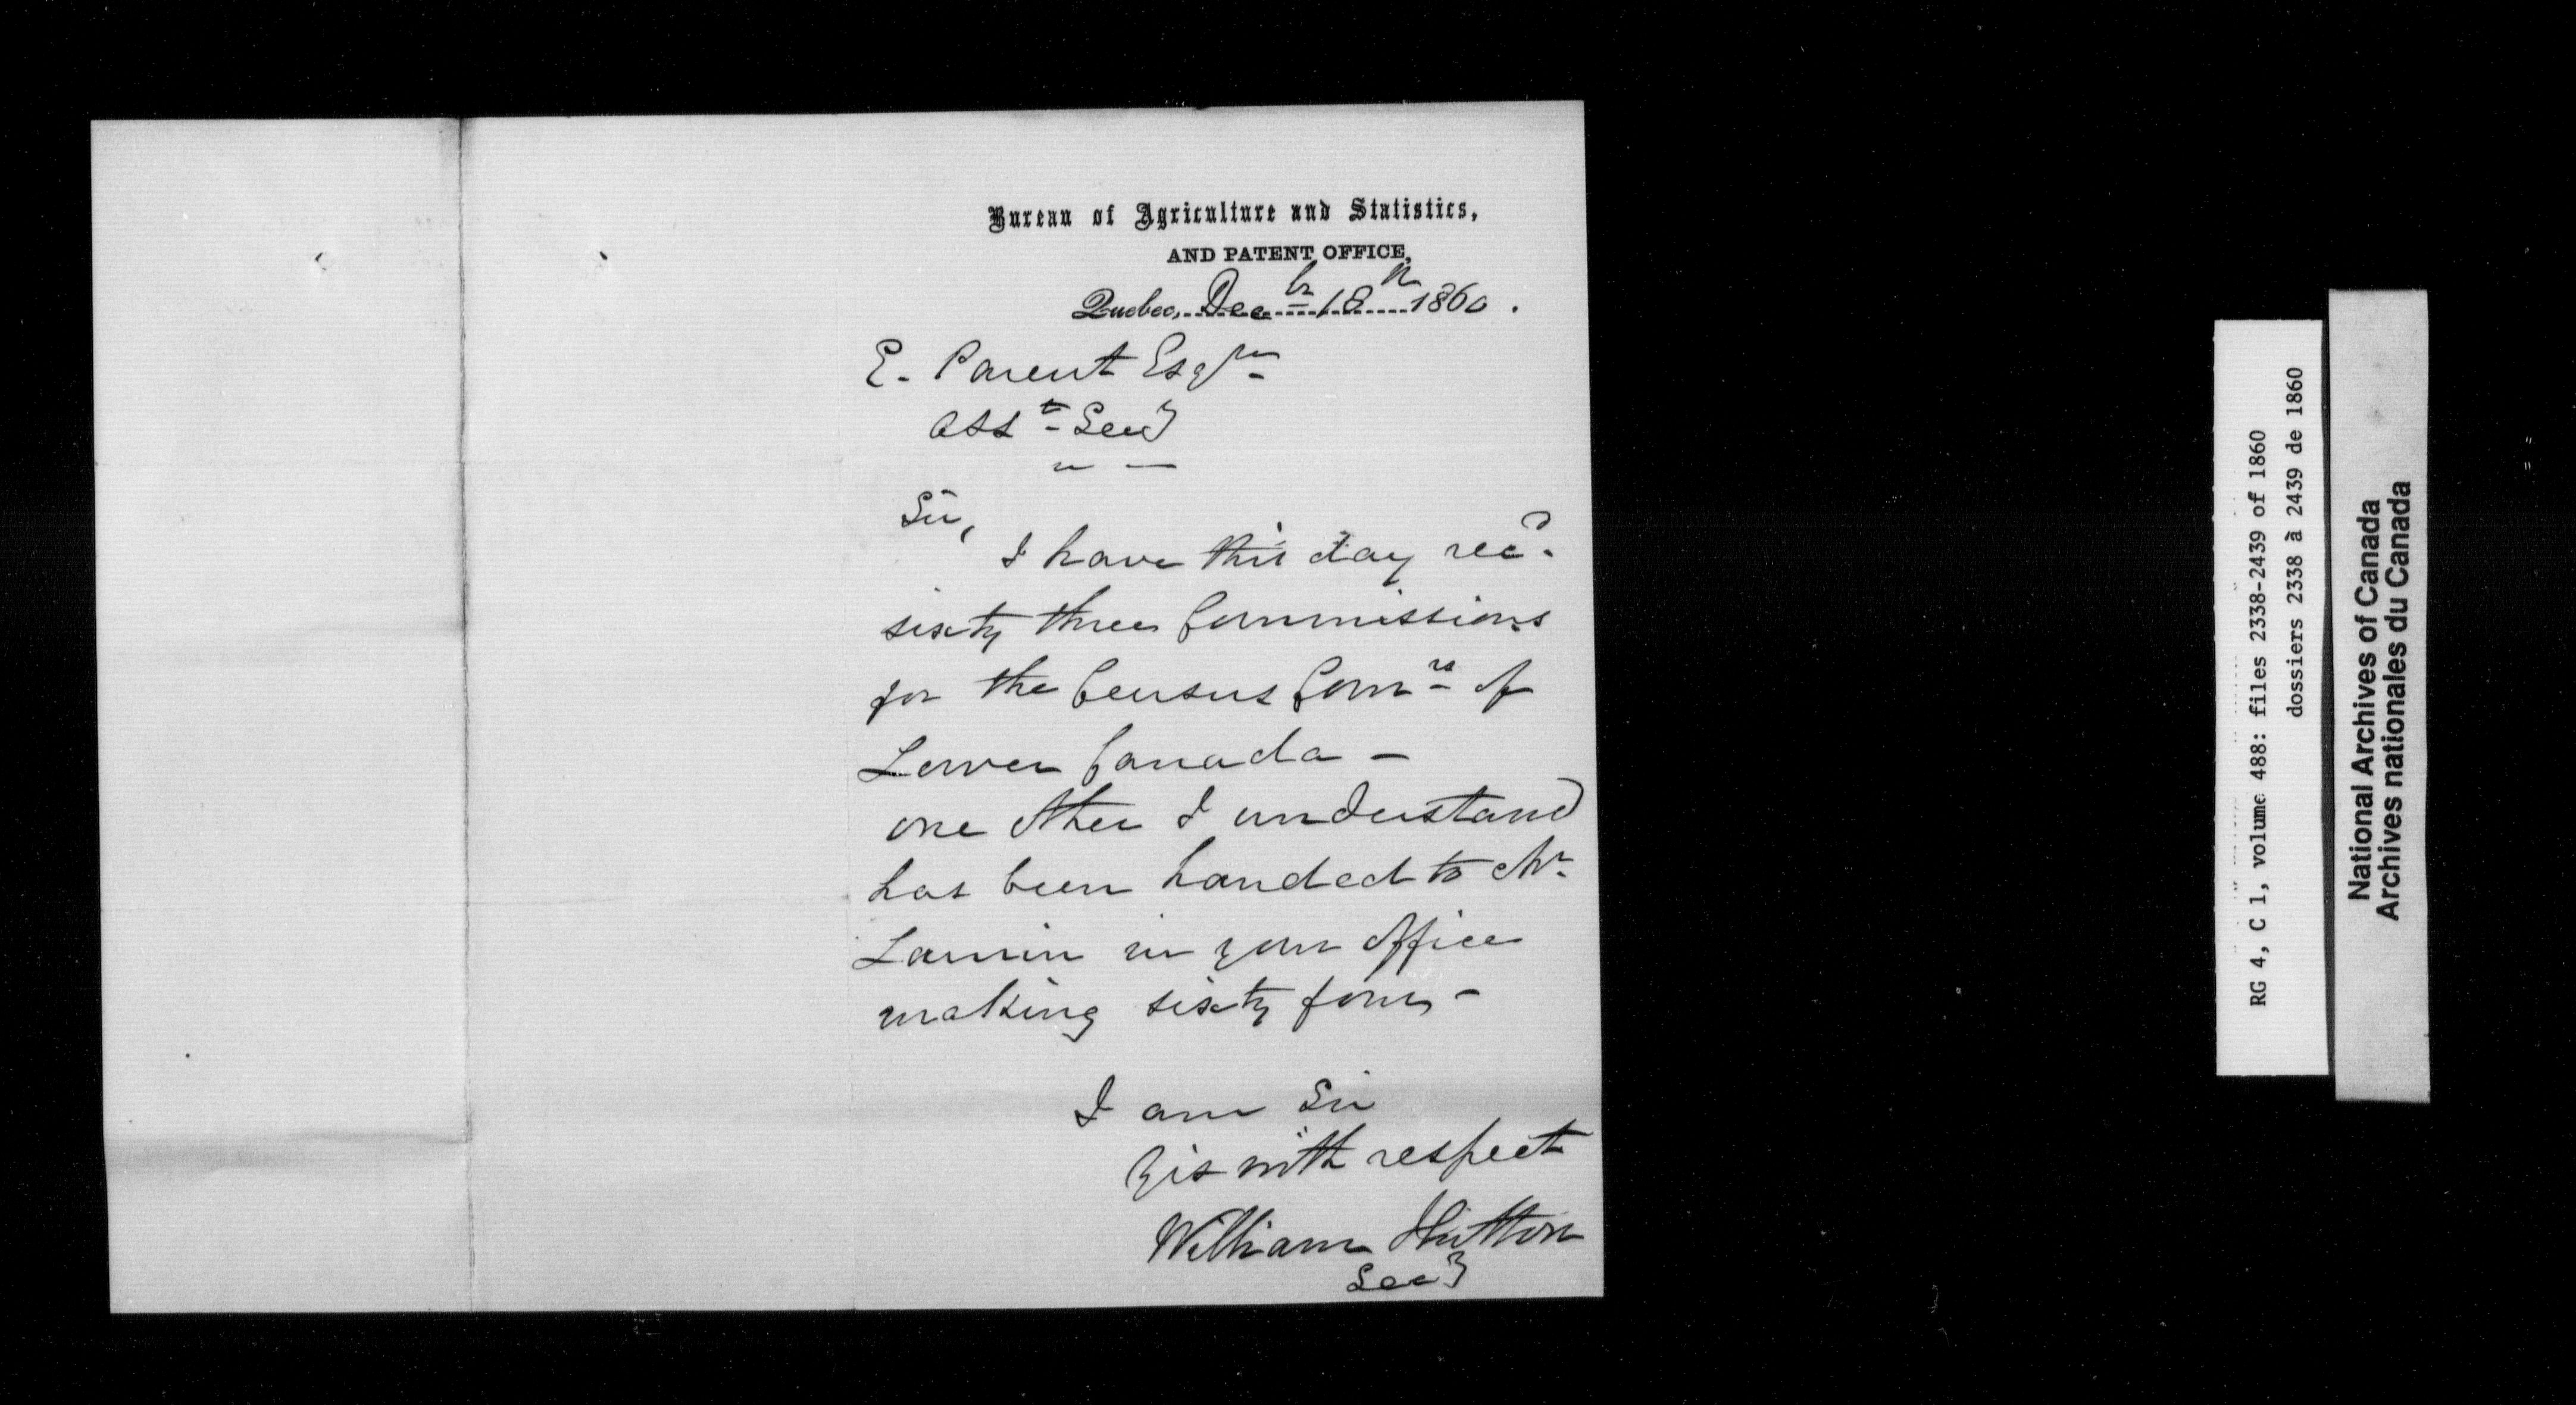 Bureau of Agriculture and Statistics,
AND PATENT OFFICE,
Quebec, Decbr 18th 1860.
E. Parent Esqre
Asst Secy
Sir,
I have this day recd.
sixty three Commissions
for the Census Comrs of
Lower Canada -
one other I understand
has been handed to Mr.
in your office
making sixty four -
I am Sir
Yrs with respect
William Hutton
Secy
RG 4, C 1, volume 488: files 2338-2439 of 1860
dossiers 2338 à 2439 de 1860
National Archives of Canada
Archives nationales du Canada